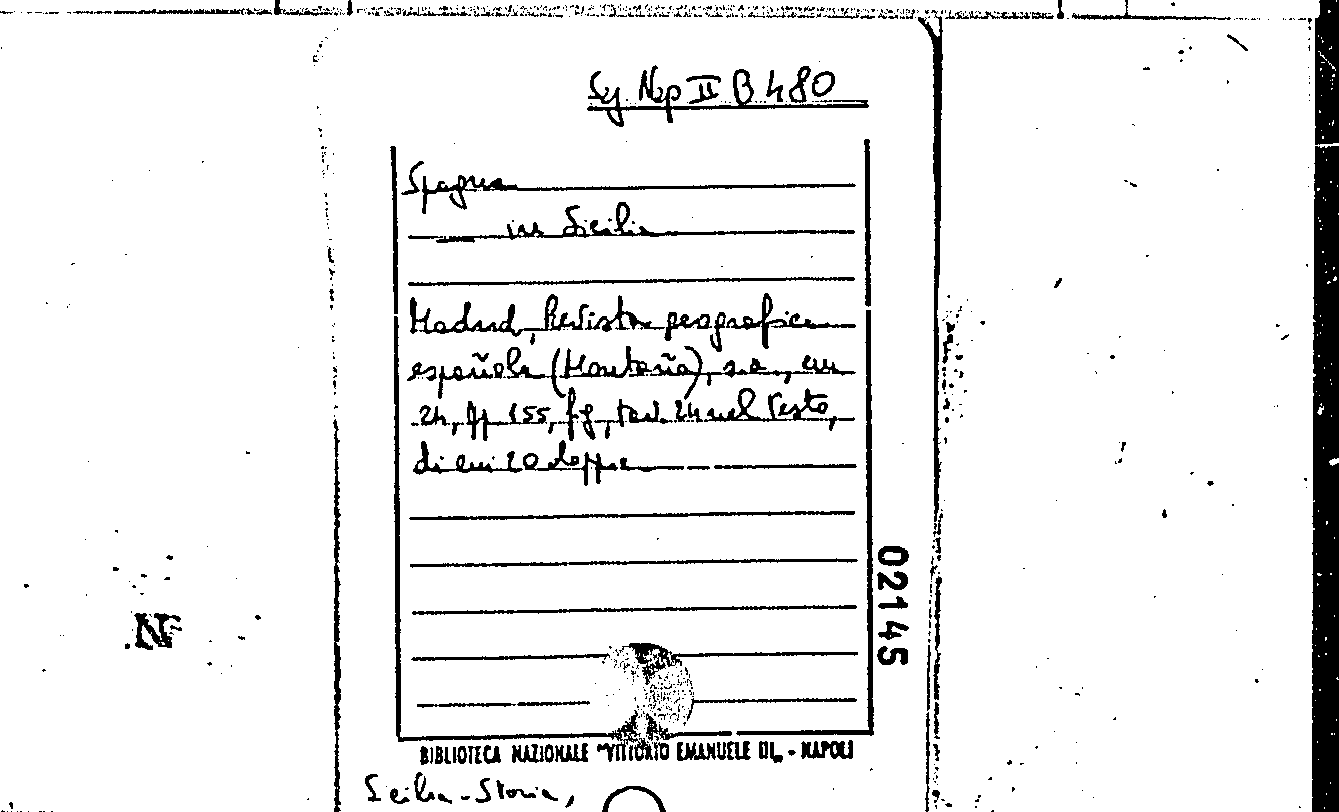 Sg Nap II B 480
Spagna
___ in Sicilia
Madrid, Revista geografica
española (Montaña), s.a., cm
24, pp 155, fig, tav. 24 nel testo,
di cui 20 doppie
02145
BIBLIOTECA NAZIONALE "VITTORIO EMANUELE III„ - NAPOLI
Sicilia - Storia,